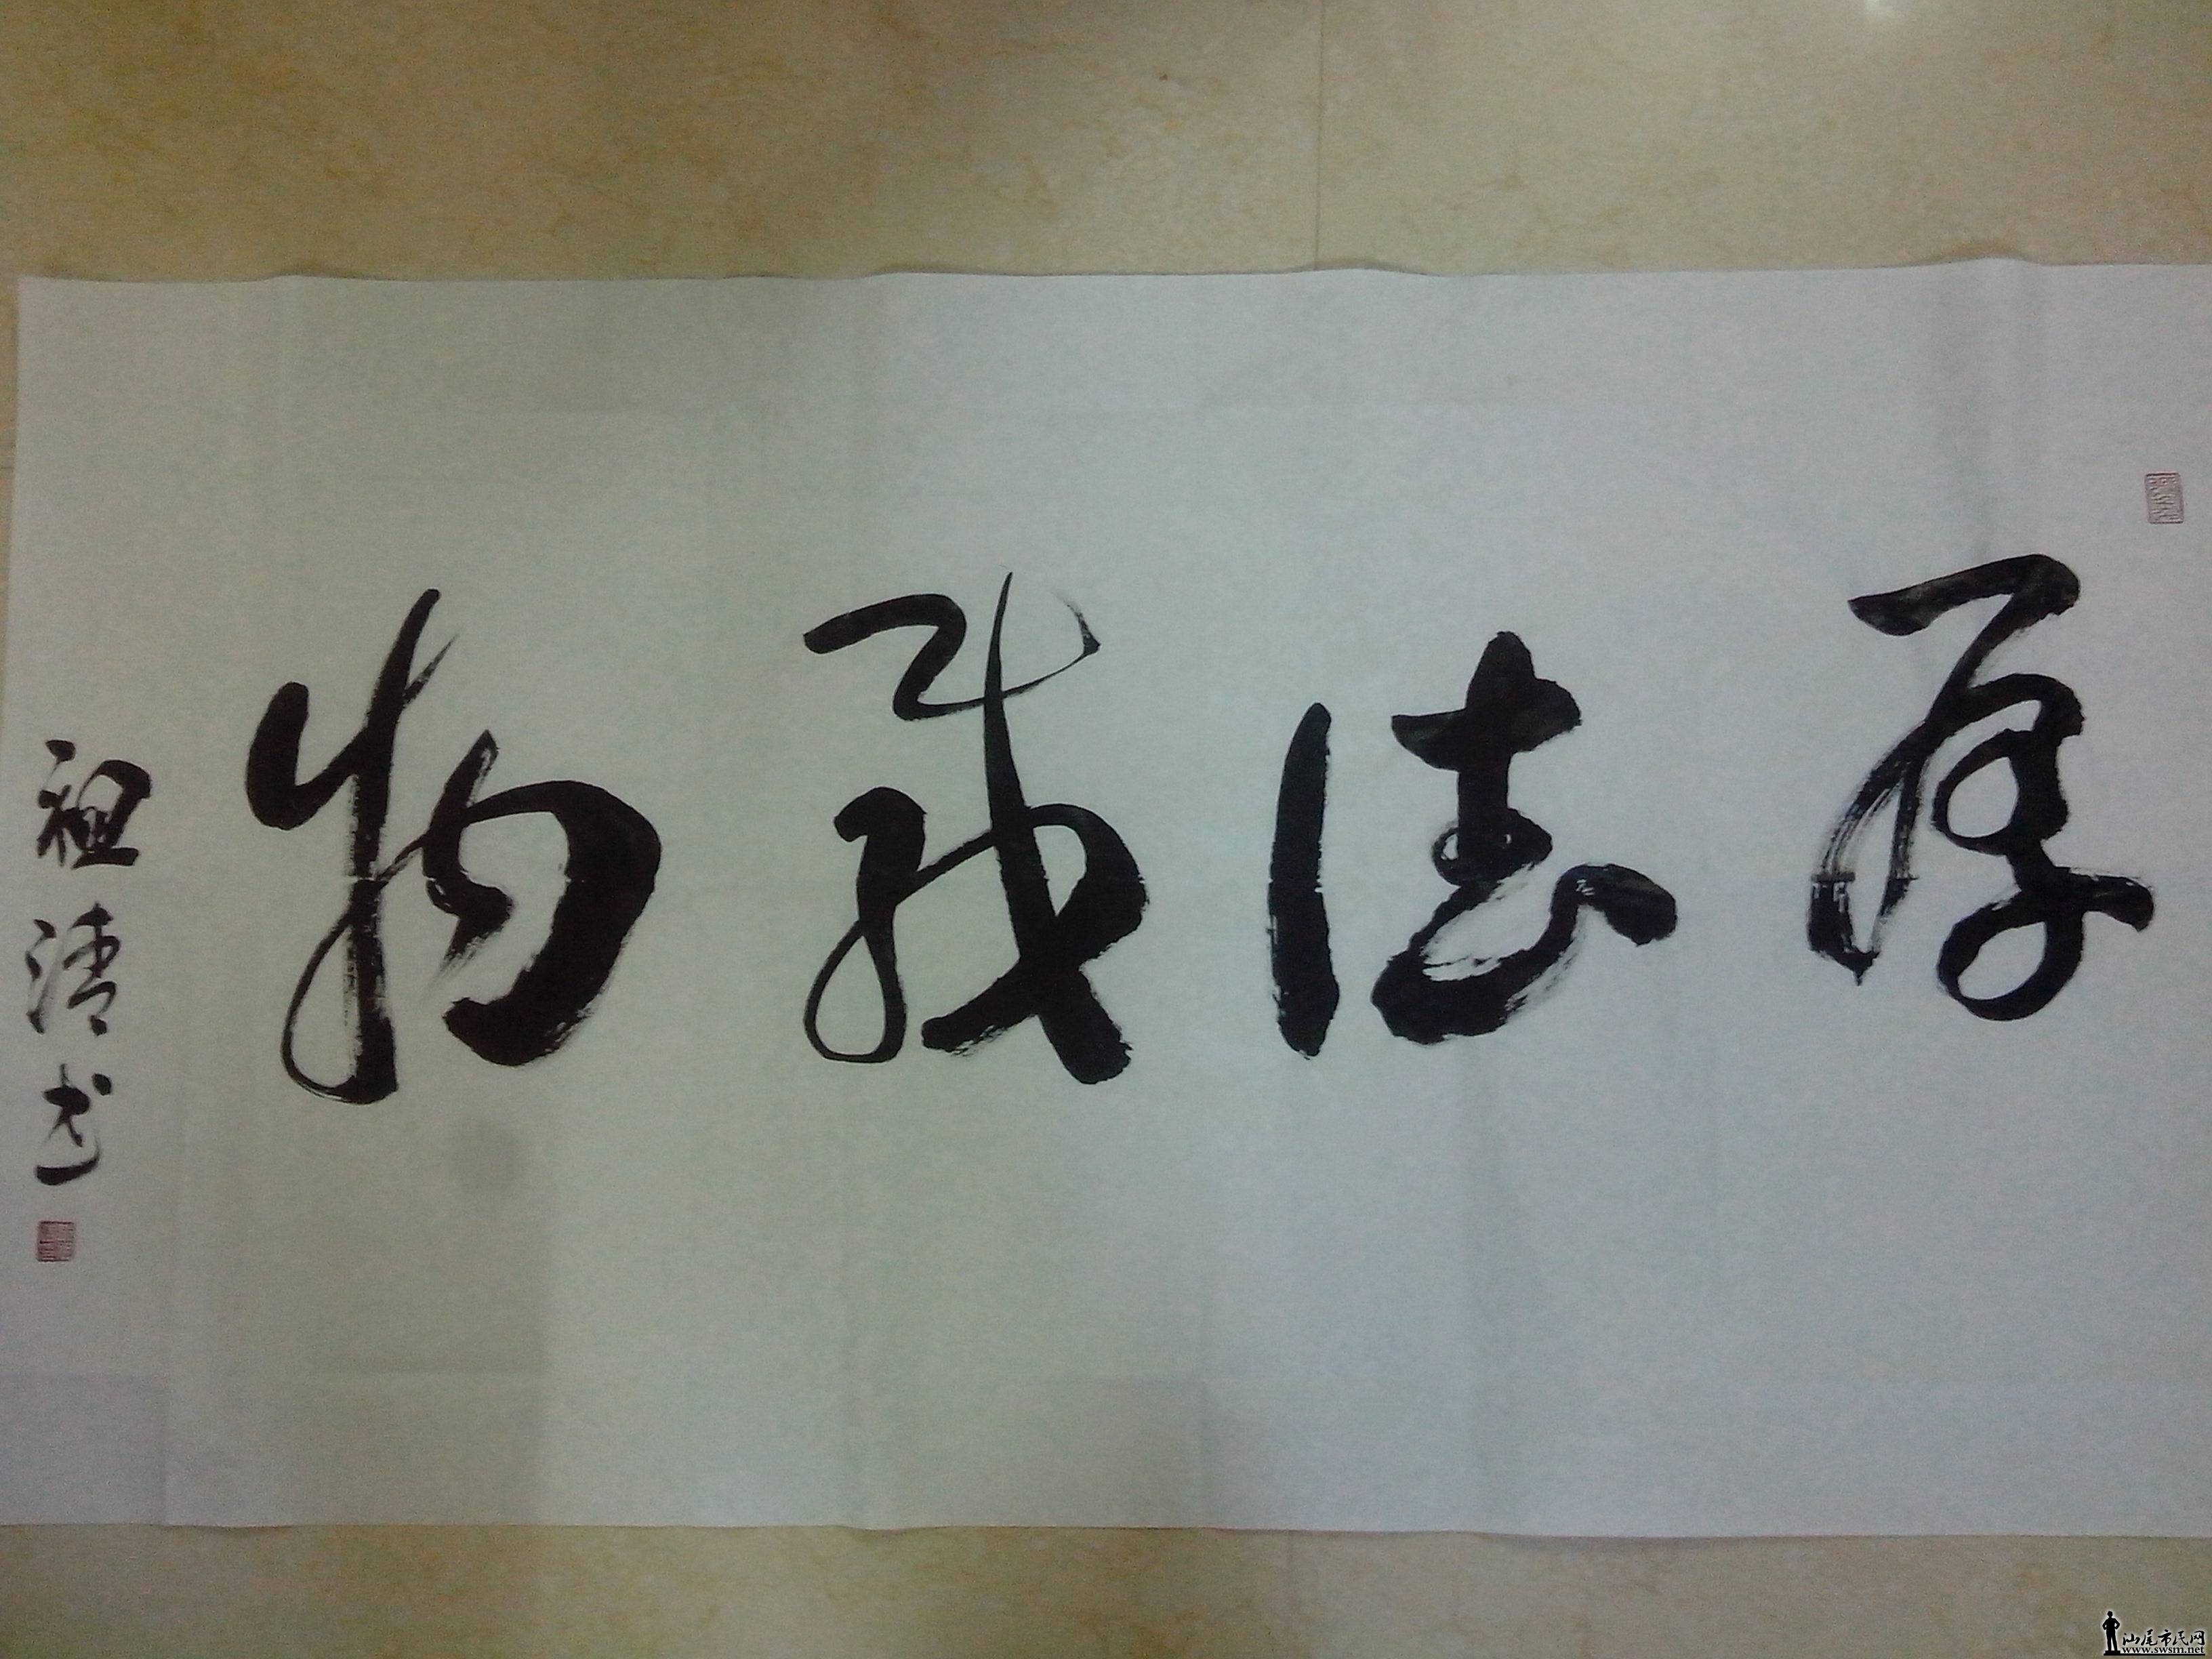 厚德载物
祖清书
汕尾市民网
www.swsm.net